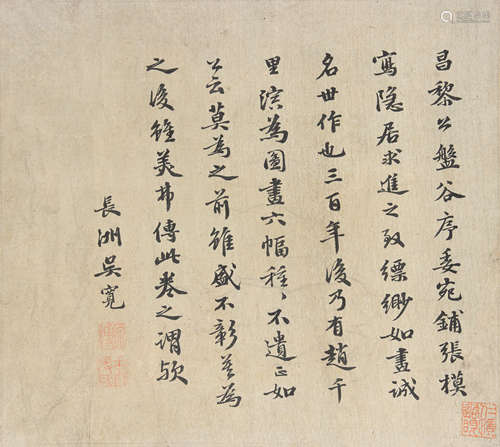 昌黎公盤谷序委宛鋪張模
寫隱居求進之致縹緲如畫誠
名世作也三百年後乃有趙千
里演為圖畫六幅種、不遺正如
公云莫為之前雖盛不彰莫為
之後雖美弗傳此卷之謂歟
長洲吳寬